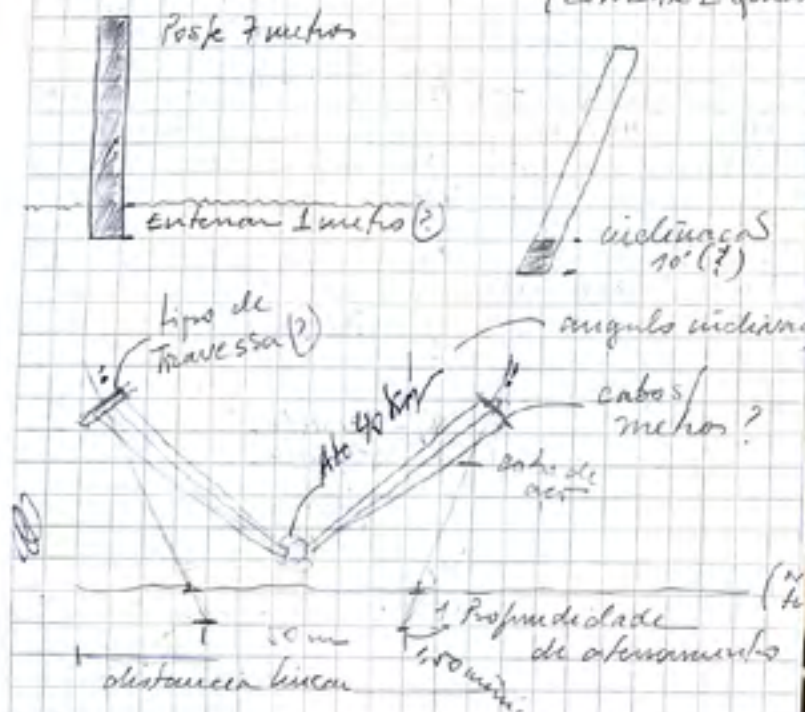 Poste 7 metros
Enterrar 1 metro (?)
inclinação
10° (?)
tipo de
Travessa (?)
angulo
Até 40
cabos/
metros?
cabo de
aço
1 Profundidade
de aterramento
distancia linear
1,50